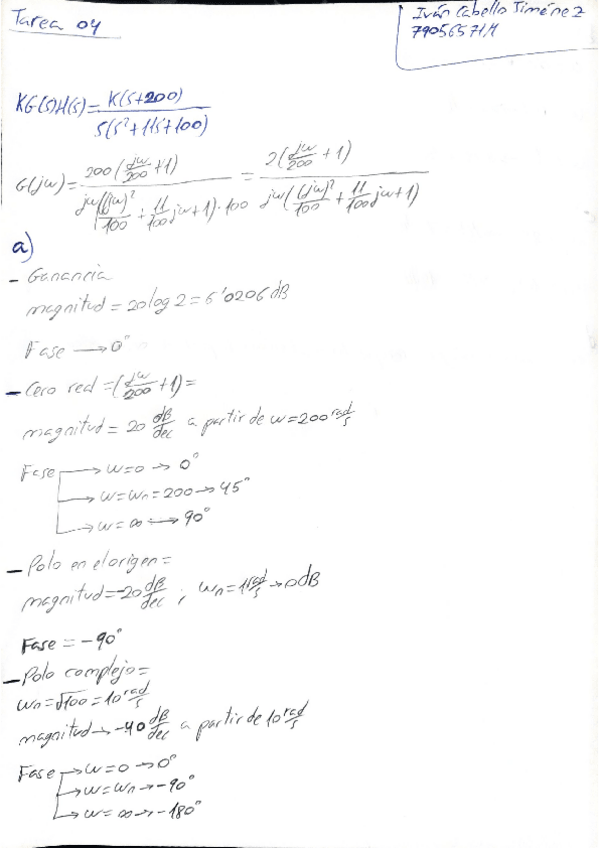 Tarea 04
Iván Cabello Jiménez
79056571M
KG(s)H(s)= K(s+200) / s(s²+11s+100)
G(jω)= 200(jω/200 +1) / jω((jω)²/100 + 11/100 jω+1)·100 = 2(jω/200 +1) / jω((jω)²/100 + 11/100 jω+1)
a)
- Ganancia
magnitud = 20log 2 = 6'0206 dB
Fase → 0°
- Cero real =(jω/200 +1)=
magnitud = 20 dB/dec a partir de ω=200 rad/s
Fase → ω=0 → 0°
→ ω=ωn=200 → 45°
→ ω=∞ → 90°
- Polo en el origen =
magnitud=-20 dB/dec ; ωn=1 rad/s → 0dB
Fase = -90°
- Polo complejo =
ωn=√100=10 rad/s
magnitud → -40 dB/dec a partir de 10 rad/s
Fase → ω=0 → 0°
→ ω=ωn → -90°
→ ω=∞ → -180°